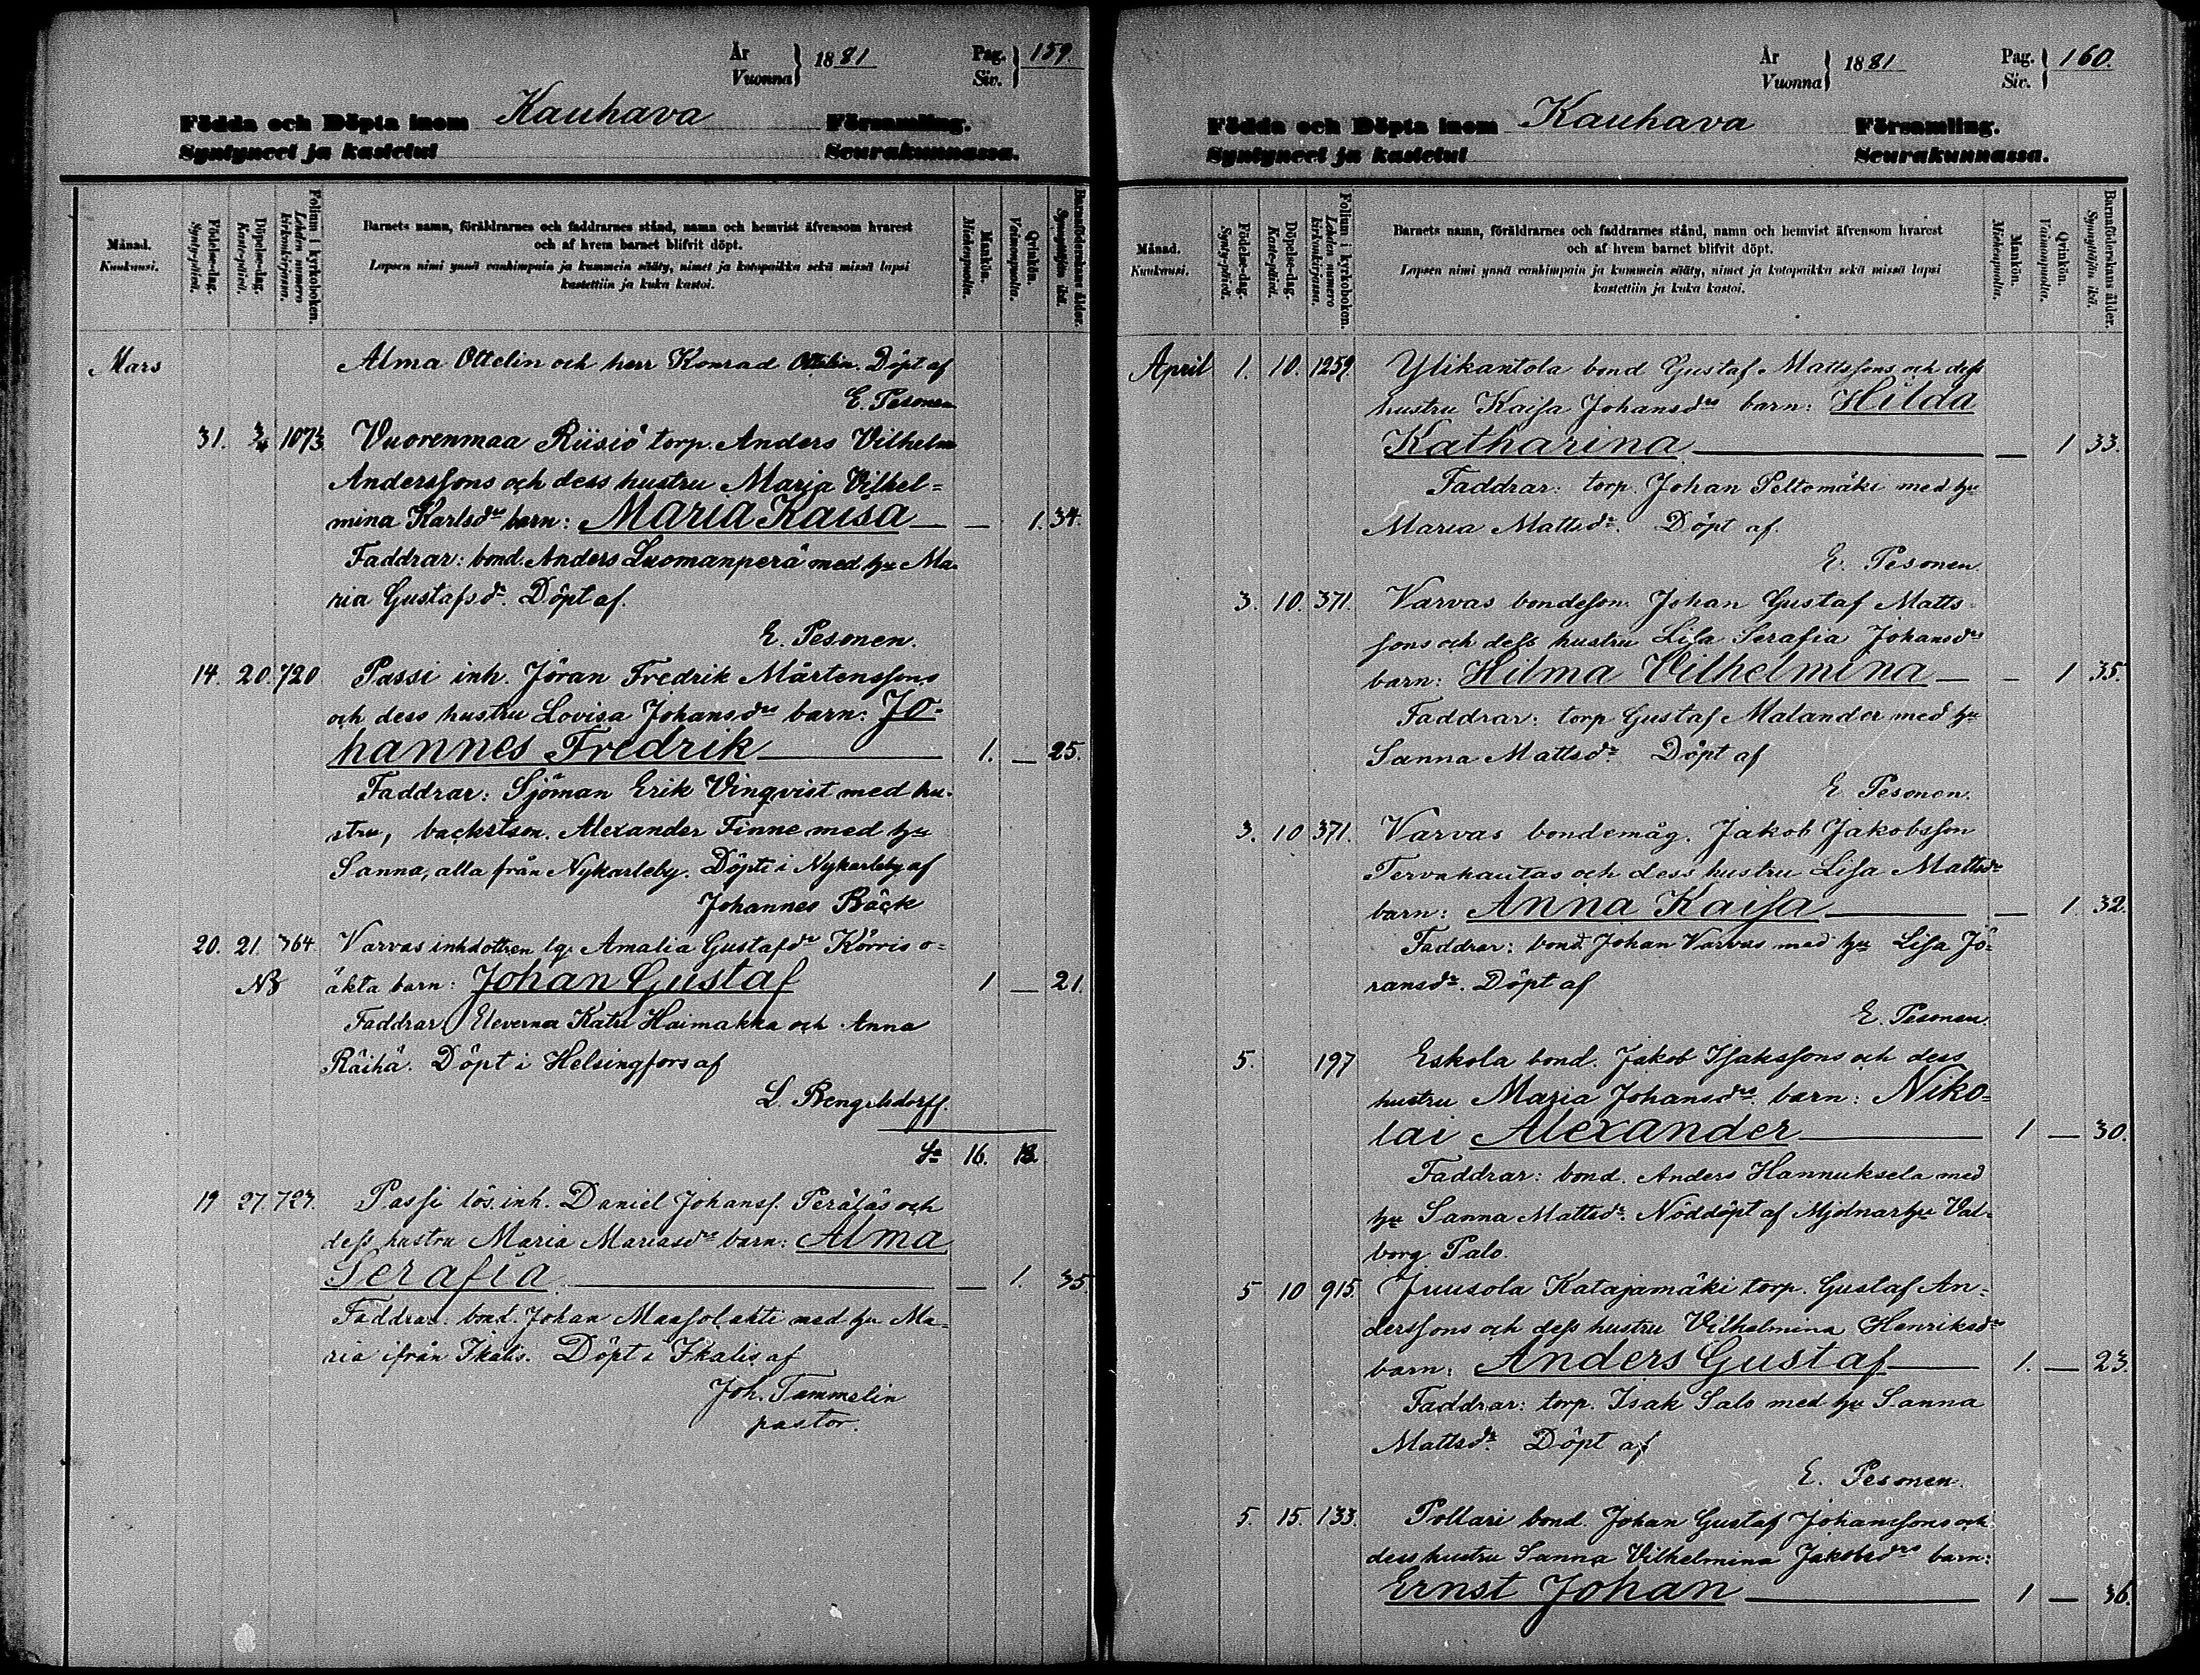 År
Vuonna
1881
Pag. 159.
Siv.
Födda och Döpta inom Kauhava Församling.
Syntyneet ja kastetut Seurakunnassa.
Månad.
Kuukausi.
Födelse-dag.
Synty-päivä.
Döpelse-dag.
Kaste-päivä.
Folium i kyrkoboken.
Lehden numero kirkonkirjassa.
Barnets namn, föräldrarnes och faddrarnes stånd, namn och hemvist äfvensom hvarest
och af hvem barnet blifvit döpt.
Lapsen nimi ynnä vanhimpain ja kummein sääty, nimet ja kotopaikka sekä missä lapsi
kastettiin ja kuka kastoi.
Mankön.
Miehenpuolta.
Qvinkön.
Vaimonpuolta.
Barnaföderskans ålder.
Synnyttäjän ikä.
Mars Alma Ottelin och herr Konrad Ottelin. Döpt af
E. Pesonen
31. 3/4 1073. Vuorenmaa Riisiö torp. Anders Vilhelm
Anderssons och dess hustru Maria Vilhel=
mina Karlsdrs barn: Maria Kaisa — — 1. 34.
Faddrar: bond. Anders Luomanperä med hu Ma-
ria Gustafsdr. Döpt af.
E. Pesonen.
14. 20. 720. Passi inh. Jöran Fredrik Mårtenssons
och dess hustru Lovisa Johansdrs barn: Jo-
hannes Fredrik — 1. — 25.
Faddrar: Sjöman Erik Vinqvist med hu-
stru, backstsm. Alexander Finne med hu
Sanna, alla från Nykarleby. Döpt i Nykarleby af
Johannes Bäck
20. 21. 364. Varvas inhdottren lg. Amalia Gustafsdr Körris o=
äkta barn: Johan Gustaf 1 — 21.
Faddrar Eleverna Katri Haimakka och Anna
Räihä. Döpt i Helsingfors af
L. Bengelsdorff.
Sa 16. 13.
19 27. 723. Passi lös. inh. Daniel Johanss. Perälås och
dess hustru Maria Mariasdrs barn: Alma
Serafia — — 1. 35.
Faddrar: bond. Johan med hu Ma-
ria ifrån Ikalis. Döpt i Ikalis af
Joh. Tammelin
pastor.
År
Vuonna
1881
Pag. 160.
Siv.
Födda och Döpta inom Kauhava Församling.
Syntyneet ja kastetut Seurakunnassa.
Månad.
Kuukausi.
Födelse-dag.
Synty-päivä.
Döpelse-dag.
Kaste-päivä.
Folium i kyrkoboken.
Lehden numero kirkonkirjassa.
Barnets namn, föräldrarnes och faddrarnes stånd, namn och hemvist äfvensom hvarest
och af hvem barnet blifvit döpt.
Lapsen nimi ynnä vanhimpain ja kummein sääty, nimet ja kotopaikka sekä missä lapsi
kastettiin ja kuka kastoi.
Mankön.
Miehenpuolta.
Qvinkön.
Vaimonpuolta.
Barnaföderskans ålder.
Synnyttäjän ikä.
April 1. 10. 1259. Ylikantola bond Gustaf Mattssons och dess
hustru Kaisa Johansdrs barn: Hilda
Katharina — — 1 33.
Faddrar: torp. Johan Peltomäki med hu
Maria Mattsdr. Döpt af.
E. Pesonen.
3. 10. 371. Varvas bondeson. Johan Gustaf Matts-
sons och dess hustru Lisa Serafia Johansdrs
barn: Hilma Vilhelmina — — 1 35.
Faddrar: torp Gustaf Malander med hu
Sanna Mattsdr. Döpt af
E. Pesonen.
3. 10 371. Varvas bondemåg. Jakob Jakobsson
Tervahautas och dess hustru Lisa Mattsdr
barn: Anna Kaisa — — 1 32.
Faddrar: bond. Johan Varvas med hu Lisa Jö-
ransdr. Döpt af
E. Pesonen.
5. 197 Eskola bond. Jakob Isakssons och dess
hustru Maria Johansdrs barn: Niko=
lai Alexander — 1 — 30.
Faddrar: bond. Anders Hannuksela med
hu Sanna Mattsdr. Nöddöpt af Mjölnarhu Val-
borg Palo.
5 10 915. Juusola Katajamäki torp. Gustaf An-
derssons och dess hustru Vilhelmina Henriksdrs
barn: Anders Gustaf — 1. — 23.
Faddrar: torp. Isak Salo med hu Sanna
Mattsdr. Döpt af
E. Pesonen.
5. 15. 133. Pollari bond. Johan Gustaf Johanssons och
dess hustru Sanna Vilhelmina Jakobsdrs barn:
Ernst Johan — 1 — 36.